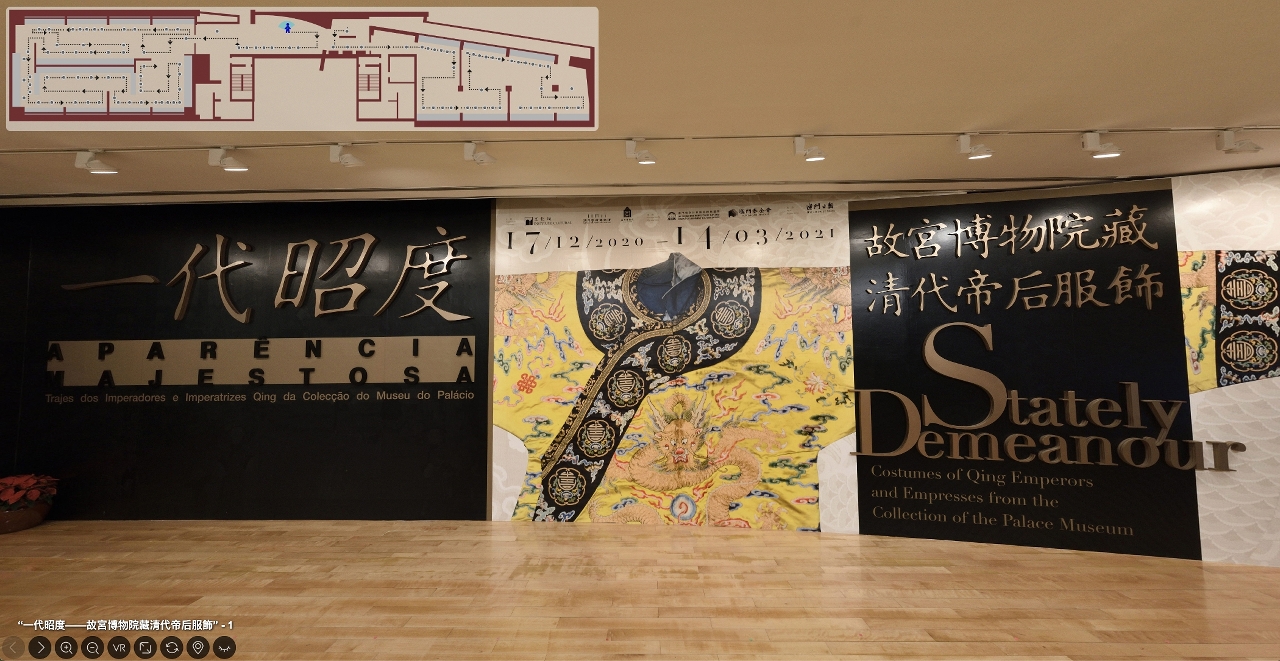 一代昭度
APARÊNCIA
MAJESTOSA
Trajes dos Imperadores e Imperatrizes Qing da Colecção do Museu do Palácio
17/12/2020 – 14/03/2021
故宮博物院藏
清代帝后服飾
Stately
Demeanour
Costumes of Qing Emperors
and Empresses from the
Collection of the Palace Museum
“一代昭度——故宮博物院藏清代帝后服飾” - 1
VR